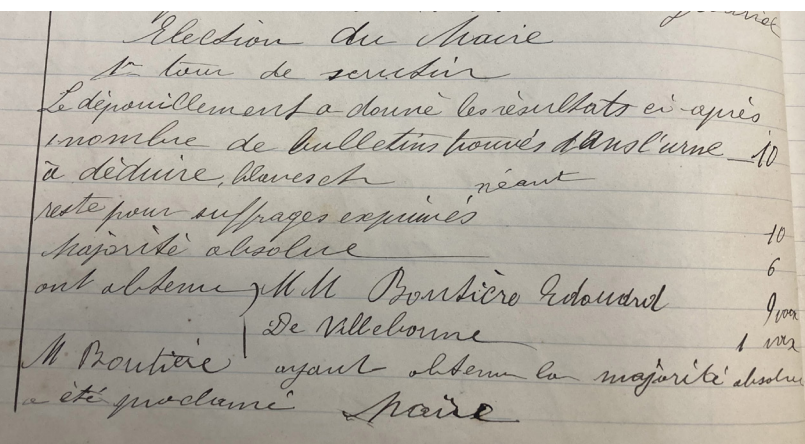 Election du Maire
1er tour de scrutin
Le dépouillement a donné les résultats ci-après
nombre de bulletins trouvés dans l'urne 10
à déduire, blancs etc néant
reste pour suffrages exprimés 10
Majorité absolue 6
ont obtenu MM Boutière Edouard 9 voix
De Villebonne 1 voix
M Boutière ayant obtenu la majorité absolue
a été proclamé Maire